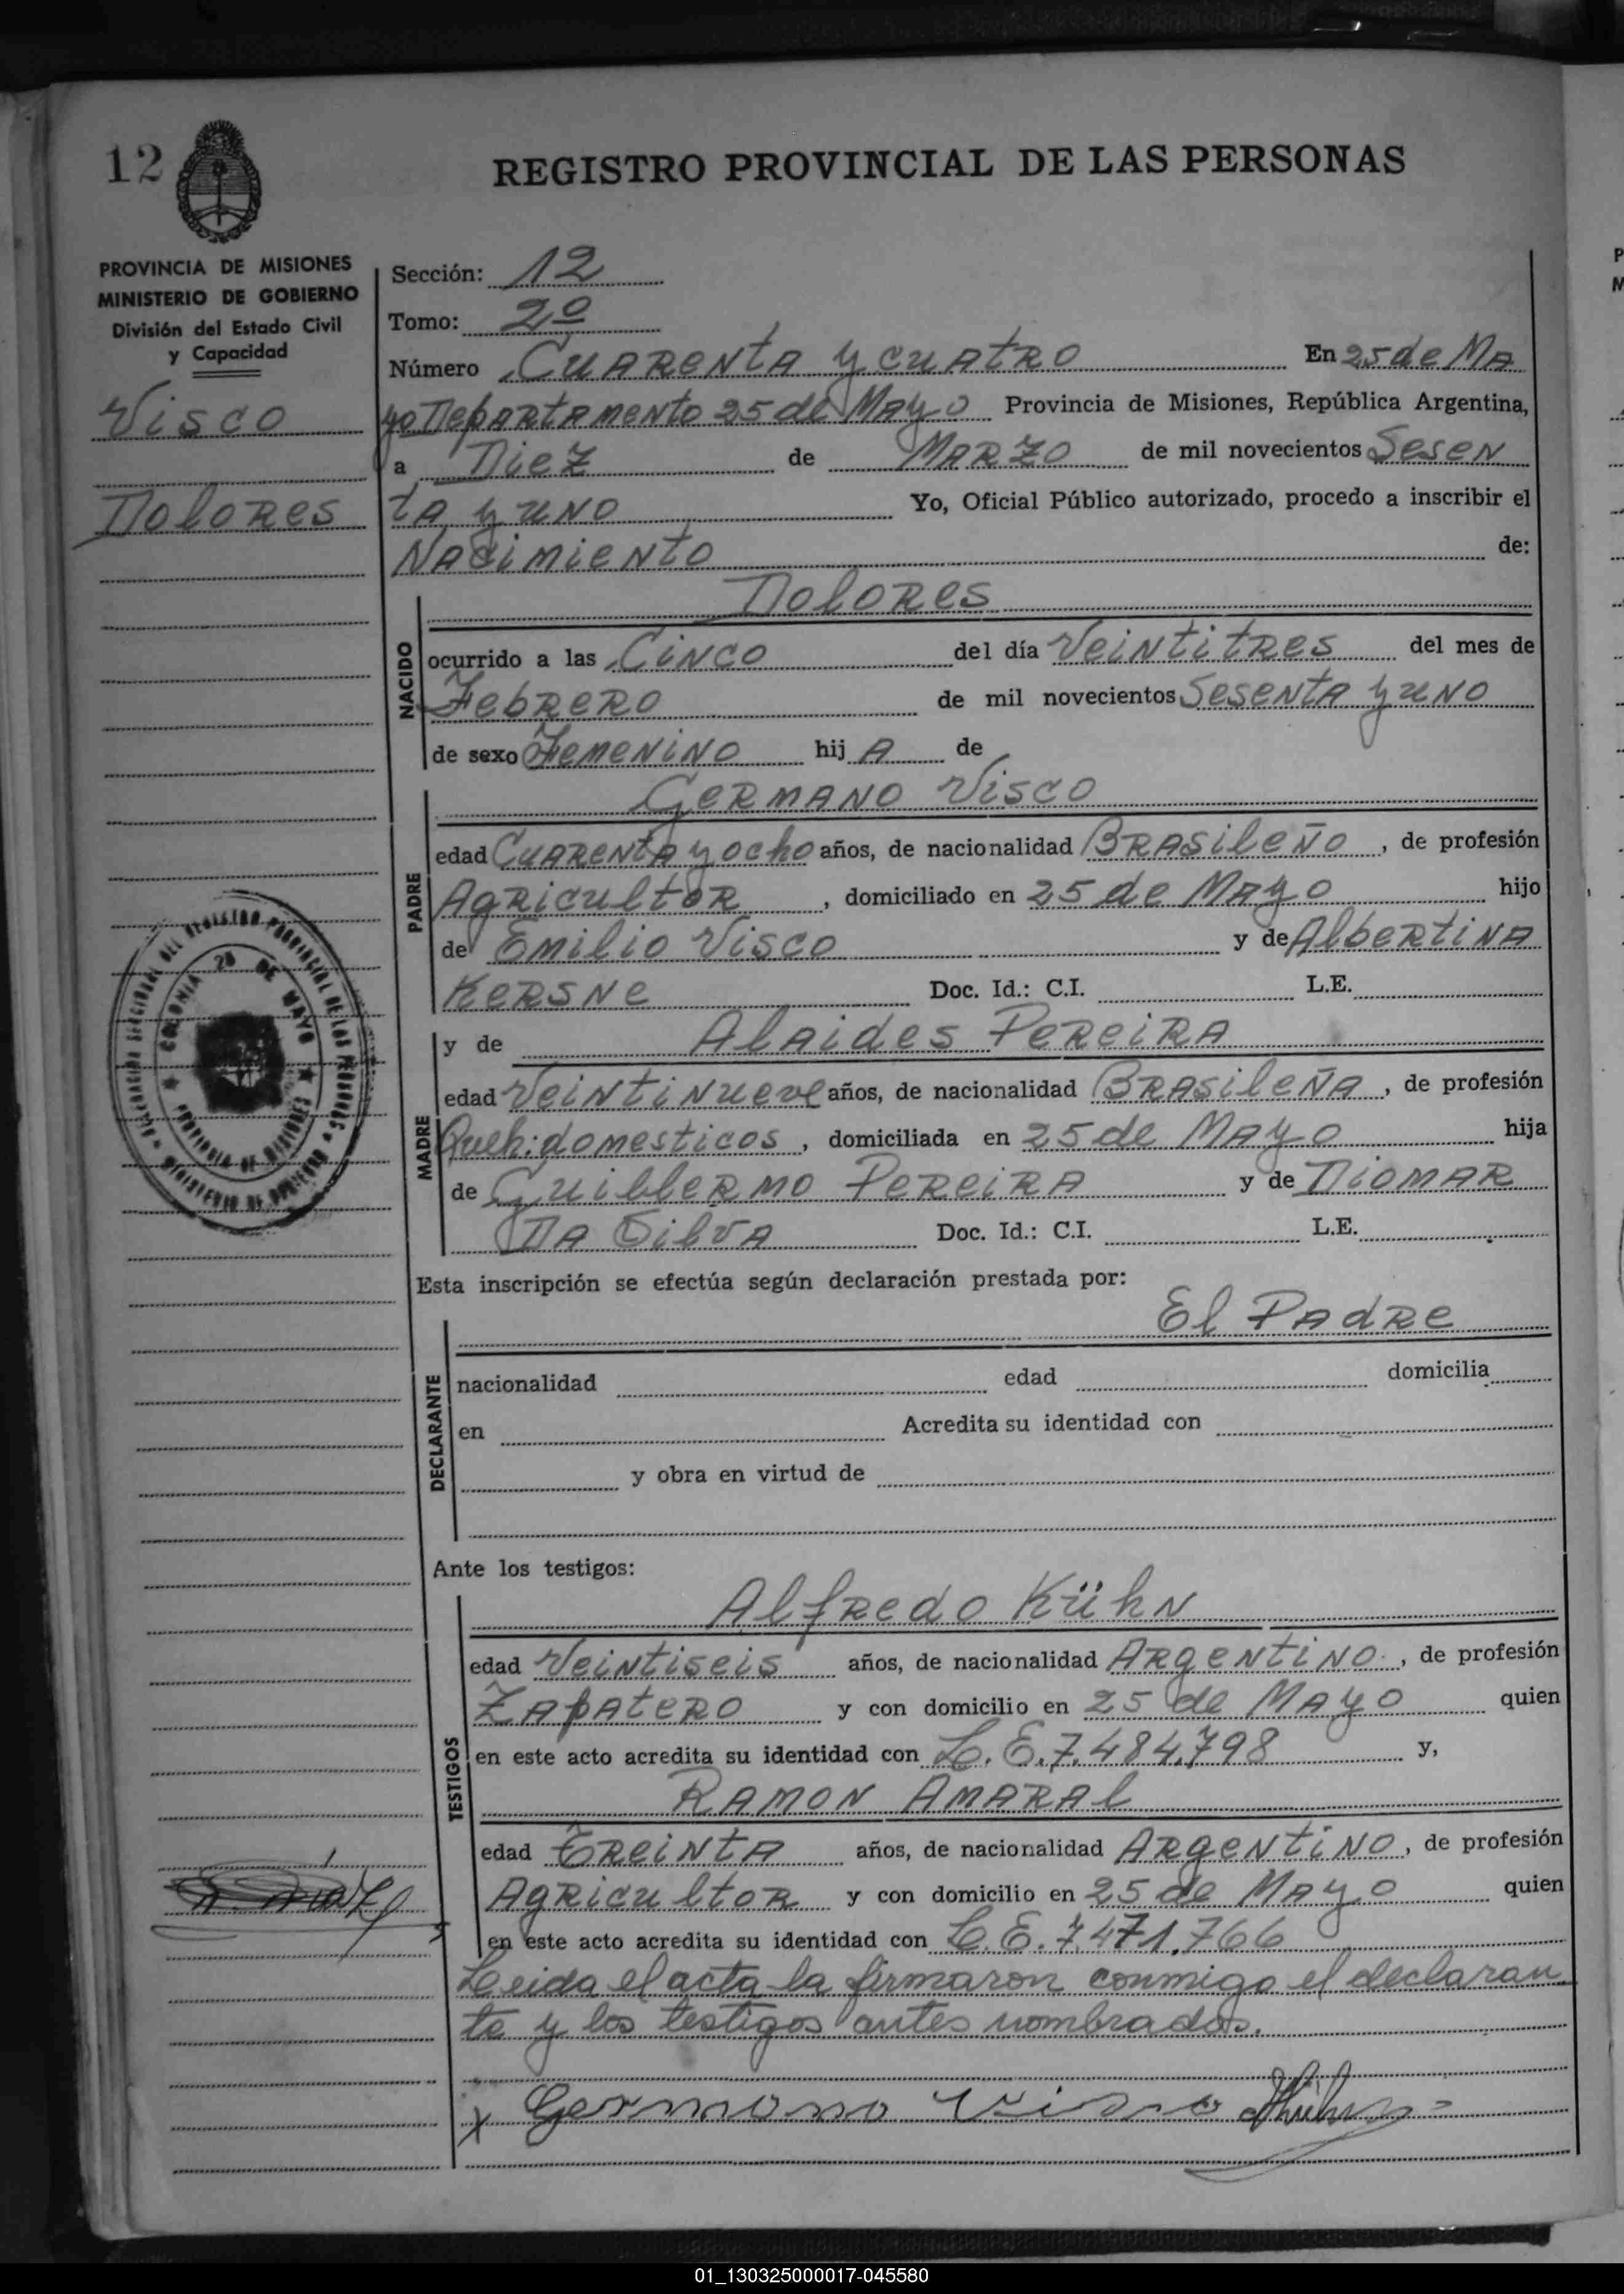 12
REGISTRO PROVINCIAL DE LAS PERSONAS
PROVINCIA DE MISIONES
MINISTERIO DE GOBIERNO
División del Estado Civil
y Capacidad
Visco
Dolores
Sección: 12
Tomo: 2º
Número Cuarenta y cuatro En 25 de Ma
yo Departamento 25 de Mayo Provincia de Misiones, República Argentina,
a Diez de Marzo de mil novecientos Sesen
ta y uno Yo, Oficial Público autorizado, procedo a inscribir el
Nacimiento de:
Dolores
NACIDO
ocurrido a las Cinco del día Veintitres del mes de
Febrero de mil novecientos Sesenta y uno
de sexo Femenino hij A de
Germano Visco
PADRE
edad Cuarenta y ocho años, de nacionalidad Brasileño, de profesión
Agricultor, domiciliado en 25 de Mayo hijo
de Emilio Visco y de Albertina
Kersne Doc. Id.: C.I. L.E.
y de Alaides Pereira
MADRE
edad Veintinueve años, de nacionalidad Brasileña, de profesión
Queh: domesticos, domiciliada en 25 de Mayo hija
de Guillermo Pereira y de Diomar
Da Silva Doc. Id.: C.I. L.E.
Esta inscripción se efectúa según declaración prestada por:
El Padre
DECLARANTE
nacionalidad edad domicilia
en Acredita su identidad con
y obra en virtud de
Ante los testigos:
Alfredo Kühn
TESTIGOS
edad Veintiseis años, de nacionalidad Argentino, de profesión
Zapatero y con domicilio en 25 de Mayo quien
en este acto acredita su identidad con L.E.7.484.798 y,
Ramon Amaral
edad Treinta años, de nacionalidad Argentino, de profesión
Agricultor y con domicilio en 25 de Mayo quien
en este acto acredita su identidad con L.E.7.471.766
Leida el acta la firmaron conmigo el declaran
te y los testigos antes nombrados.
x Germano Visco AKühn
COLONIA 25 DE MAYO
PROVINCIA DE MISIONES
01_130325000017-045580